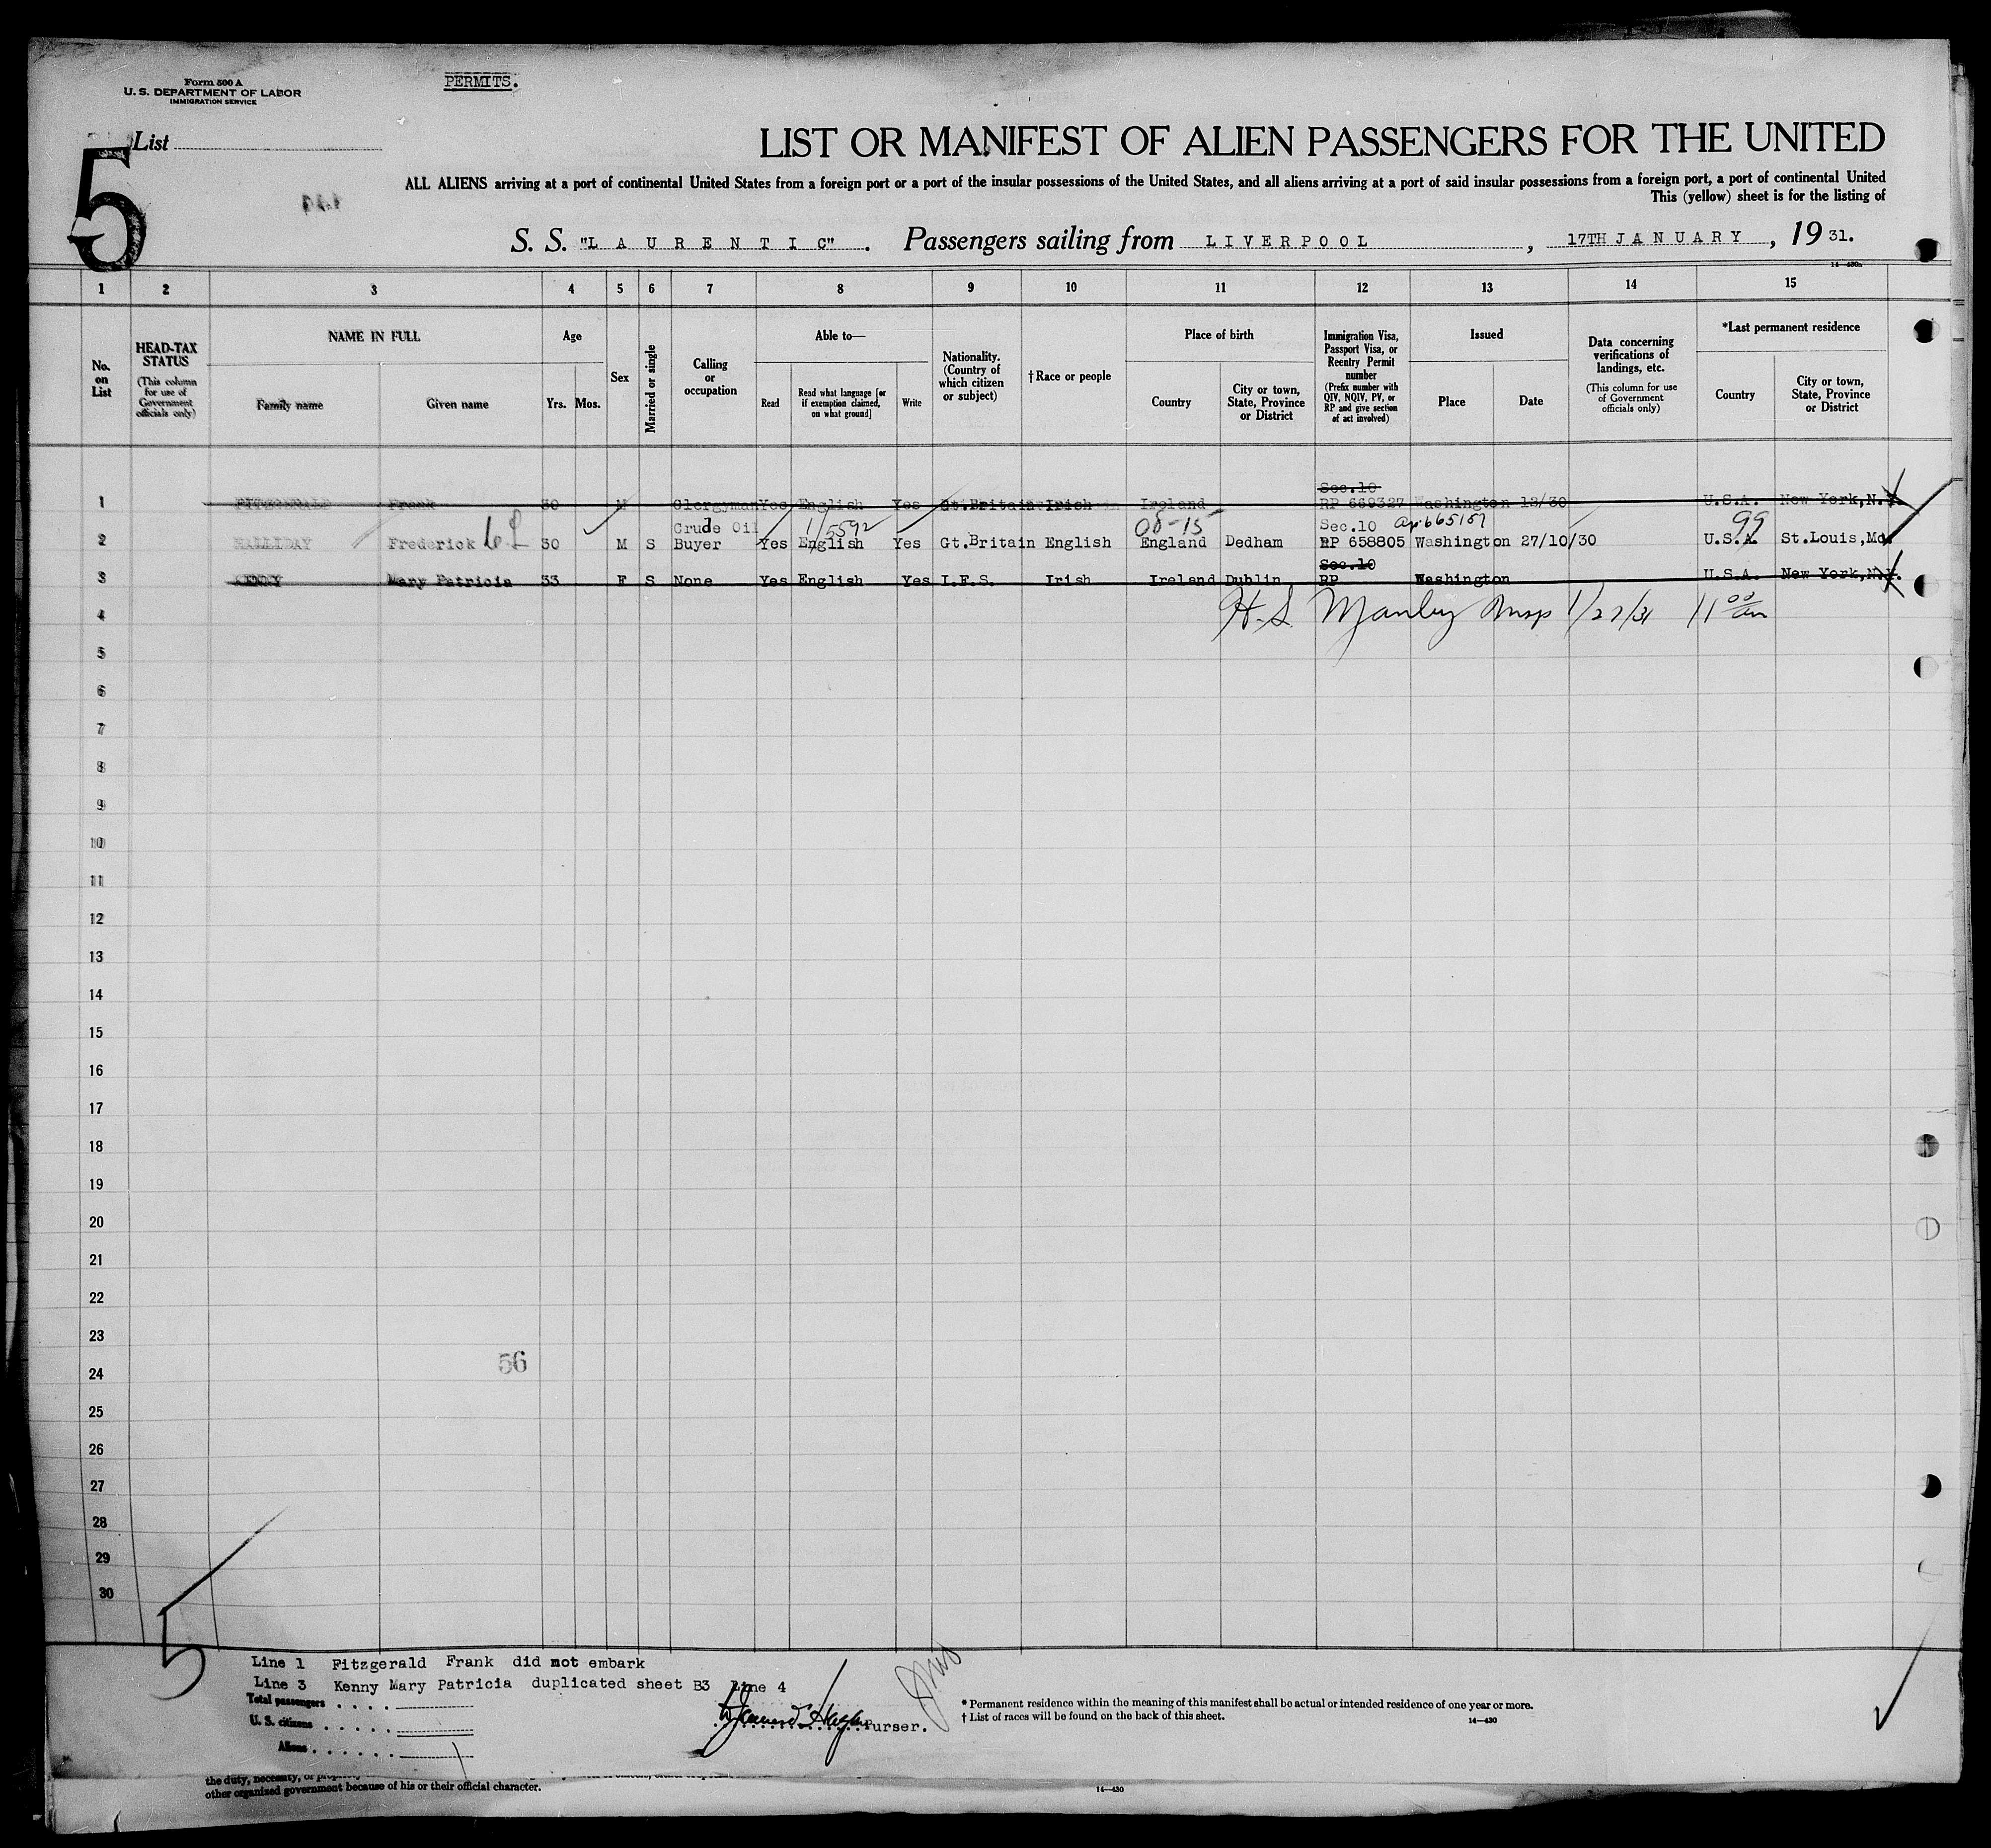 Form 500 A
U. S. DEPARTMENT OF LABOR
IMMIGRATION SERVICE
PERMITS.
List
5
LIST OR MANIFEST OF ALIEN PASSENGERS FOR THE UNITED
ALL ALIENS arriving at a port of continental United States from a foreign port or a port of the insular possessions of the United States, and all aliens arriving at a port of said insular possessions from a foreign port, a port of continental United
This (yellow) sheet is for the listing of
S. S. "LAURENTIC". Passengers sailing from LIVERPOOL, 17TH JANUARY, 19 31.
14—430a
1 2 3 4 5 6 7 8 9 10 11 12 13 14 15
No. on List
HEAD-TAX STATUS (This column for use of Government officials only)
NAME IN FULL
Family name Given name
Age
Yrs. Mos.
Sex
Married or single
Calling or occupation
Able to—
Read Read what language [or if exemption claimed, on what ground] Write
Nationality. (Country of which citizen or subject)
† Race or people
Place of birth
Country City or town, State, Province or District
Immigration Visa, Passport Visa, or Reentry Permit number (Prefix number with QIV, NQIV, PV, or RP and give section of act involved)
Issued
Place Date
Data concerning verifications of landings, etc. (This column for use of Government officials only)
*Last permanent residence
Country City or town, State, Province or District
Sec.10
1 FITZGERALD Frank 30 M Clergyman Yes English Yes Gt.Britain Irish Ireland RP 669327 Washington 12/30 U.S.A. New York, N.Y.
Crude Oil 1/5592 05-15 Sec.10 665157 99
2 HALLIDAY Frederick 30 M S Buyer Yes English Yes Gt.Britain English England Dedham RP 658805 Washington 27/10/30 U.S.A. St.Louis, Mo.
Sec.10
3 KENNY Mary Patricia 33 F S None Yes English Yes I.F.S. Irish Ireland Dublin RP Washington U.S.A. New York, N.Y.
4 H.S. Manley Insp 1/27/31 11 00 am
5
6
7
8
9
10
11
12
13
14
15
16
17
18
19
20
21
22
23
56
24
25
26
27
28
29
30
5
Line 1 Fitzgerald Frank did not embark
Line 3 Kenny Mary Patricia duplicated sheet B3 Line 4
Total passengers
U. S. citizens
Aliens
Purser.
* Permanent residence within the meaning of this manifest shall be actual or intended residence of one year or more.
† List of races will be found on the back of this sheet.
14—430
the duty, necessity, or
other organized government because of his or their official character.
14—430